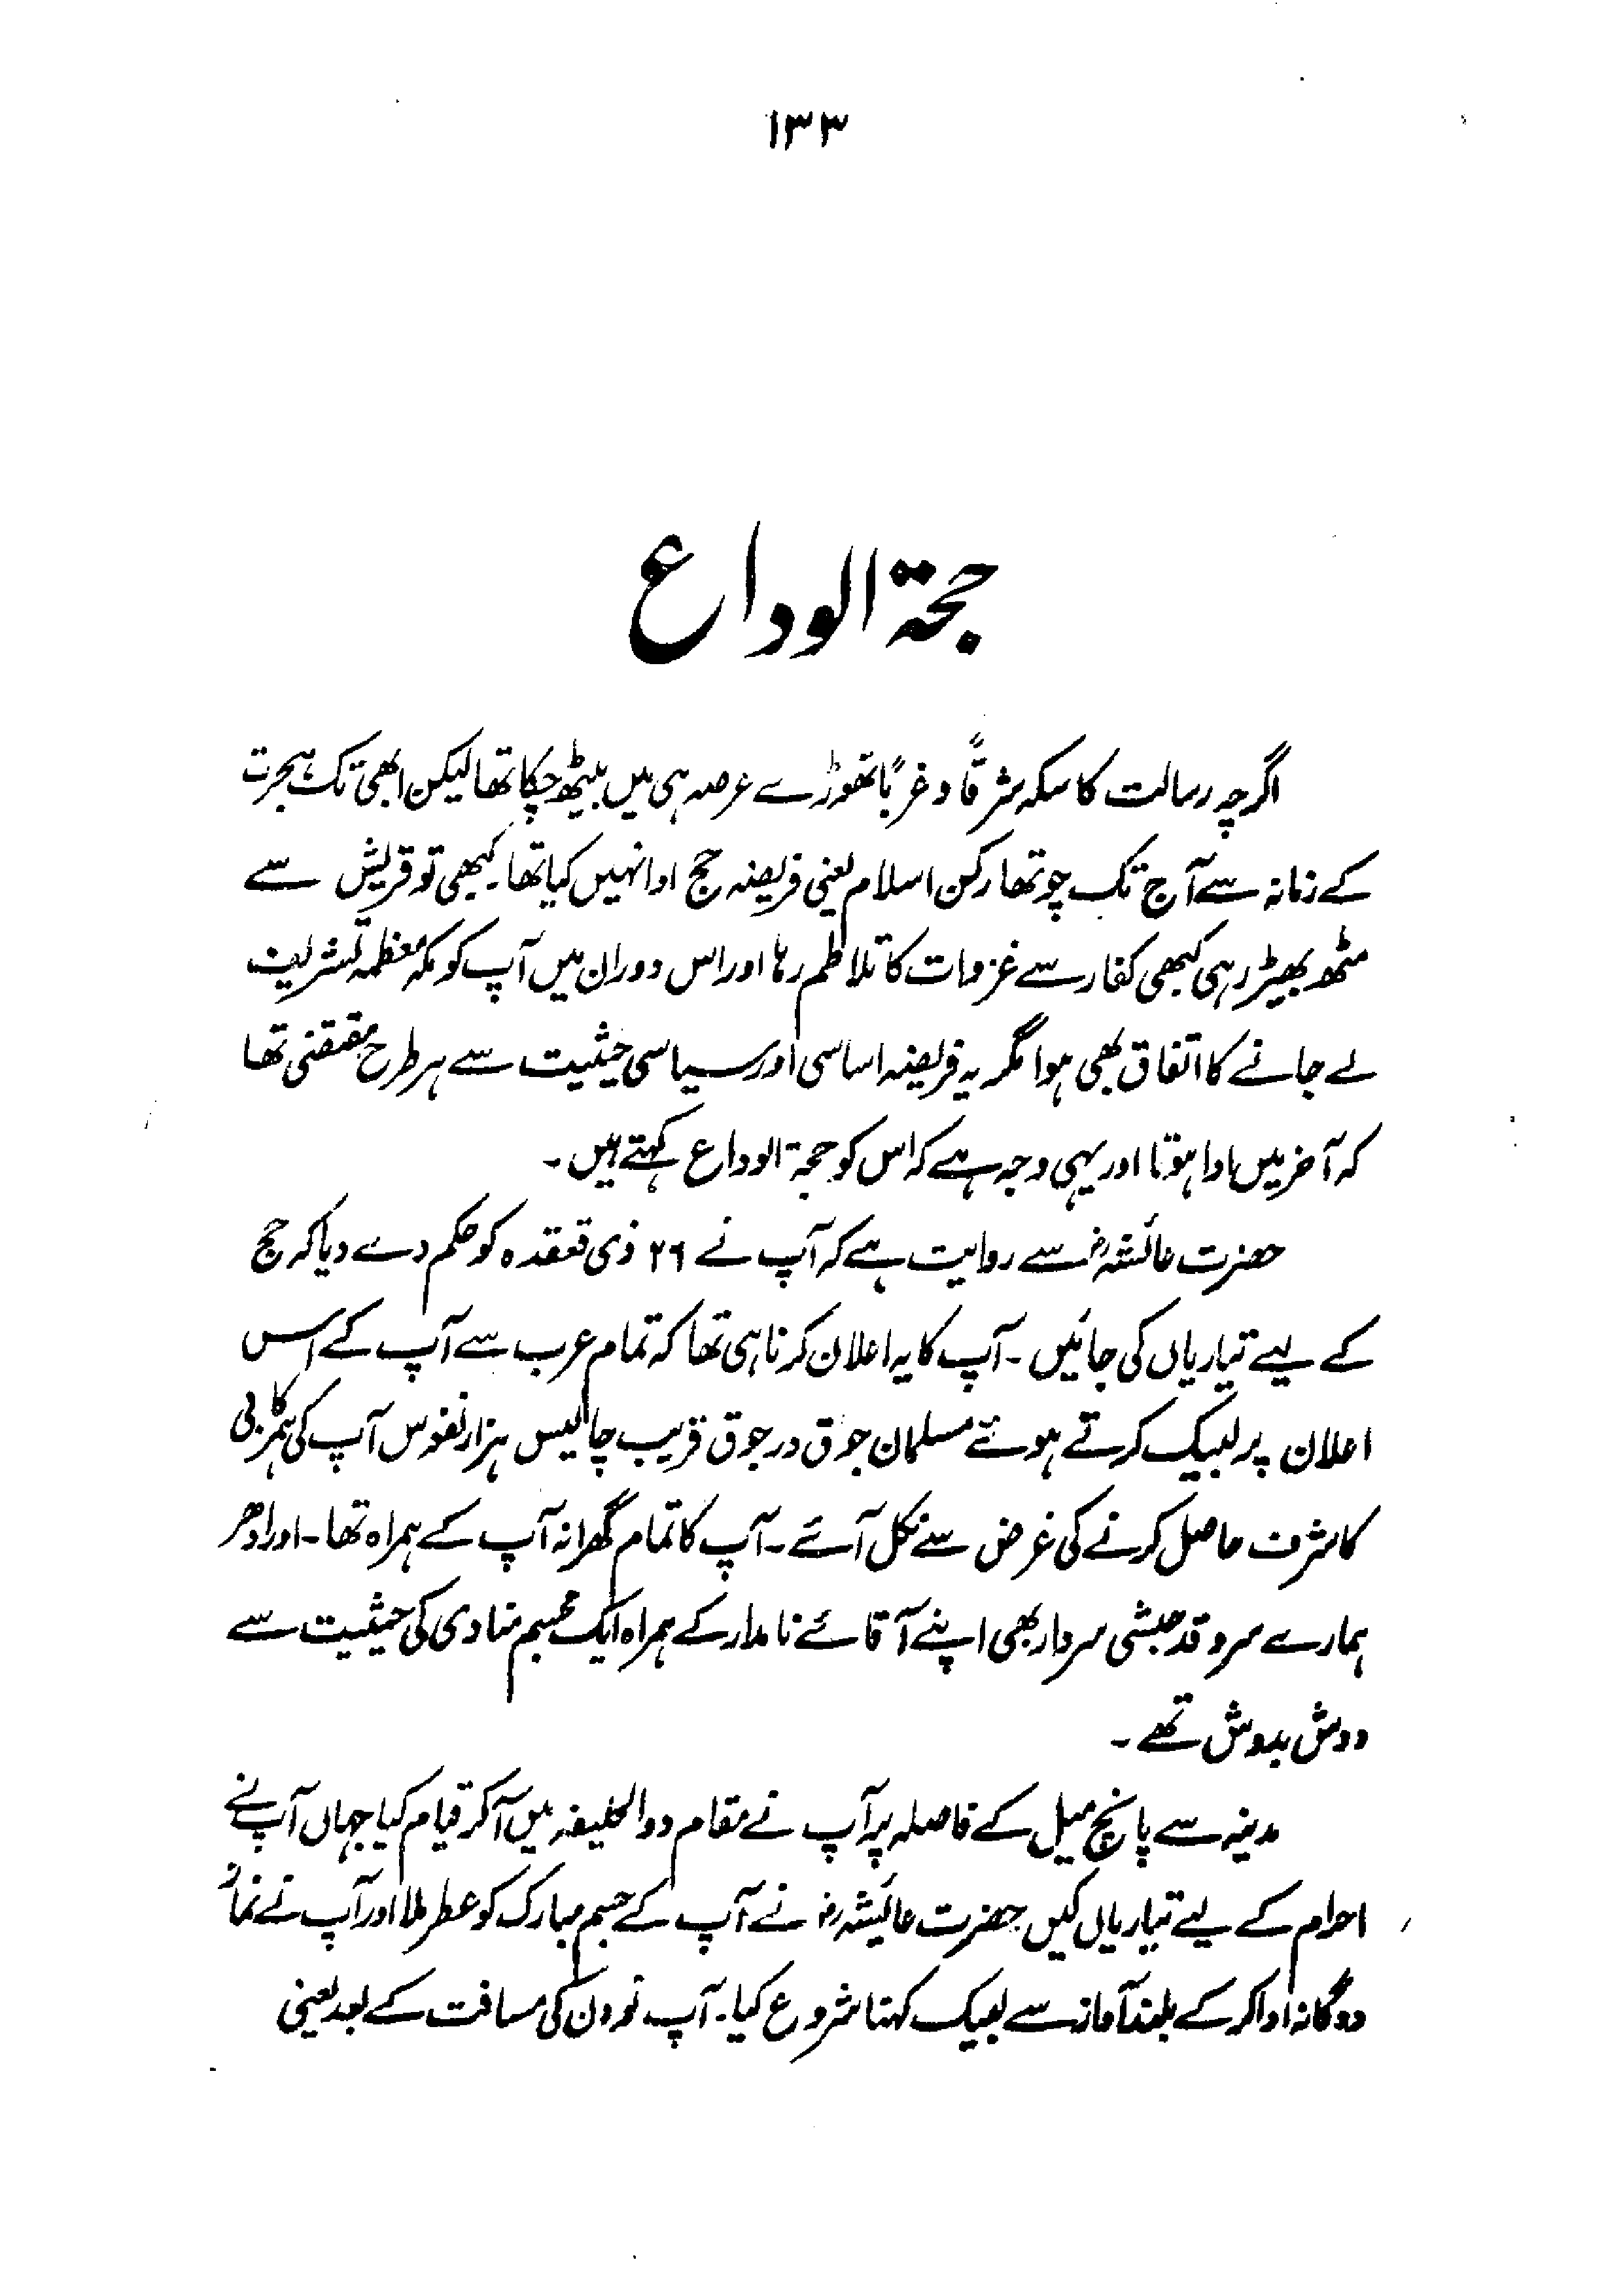 ۱۳۳
حجۃ الوداع
اگرچہ رسالت کا سکہ شرقاً و غرباً تھوڑے عرصہ ہی میں بیٹھ چکا تھا لیکن ابھی تک ہجرت
کے زمانہ سے آج تک چوتھا رکن اسلام یعنی فریضہ حج ادا نہیں کیا تھا۔ کبھی تو قریش سے
مٹھ بھیڑ رہی کبھی کفار سے غزوات کا تلاطم رہا اور اس دوران میں آپ کو مکہ معظمہ تشریف
لے جانے کا اتفاق بھی ہوا مگر یہ فریضہ اساسی اور سیاسی حیثیت سے ہر طرح مقتضی تھا
کہ آخر میں ادا ہوتا اور یہی وجہ ہے کہ اس کو حجۃ الوداع کہتے ہیں۔
حضرت عائشہؓ سے روایت ہے کہ آپ نے ۲۶ ذی قعدہ کو حکم دے دیا کہ حج
کے لیے تیاریاں کی جائیں۔ آپ کا یہ اعلان کرنا ہی تھا کہ تمام عرب سے آپ کے اس
اعلان پر لبیک کرتے ہوئے مسلمان جوق در جوق قریب چالیس ہزار نفوس آپ کی ہمرکابی
کا شرف حاصل کرنے کی غرض سے نکل آئے۔ آپ کا تمام گھرانہ آپ کے ہمراہ تھا۔ اور ادھر
ہمارے سرو قد حبشی سردار بھی اپنے آقائے نامدار کے ہمراہ ایک مجسم منادی کی حیثیت سے
دوش بدوش تھے۔
مدینہ سے پانچ میل کے فاصلہ پر آپ نے مقام ذوالحلیفہ میں آکر قیام کیا جہاں آپ نے
احرام کے لیے تیاریاں کیں حضرت عائیشہؓ نے آپ کے جسم مبارک کو عطر ملا اور آپ نے نماز
دوگانہ ادا کر کے بلند آواز سے لبیک کہنا شروع کیا۔ آپ نو دن کی مسافت کے بعد یعنی